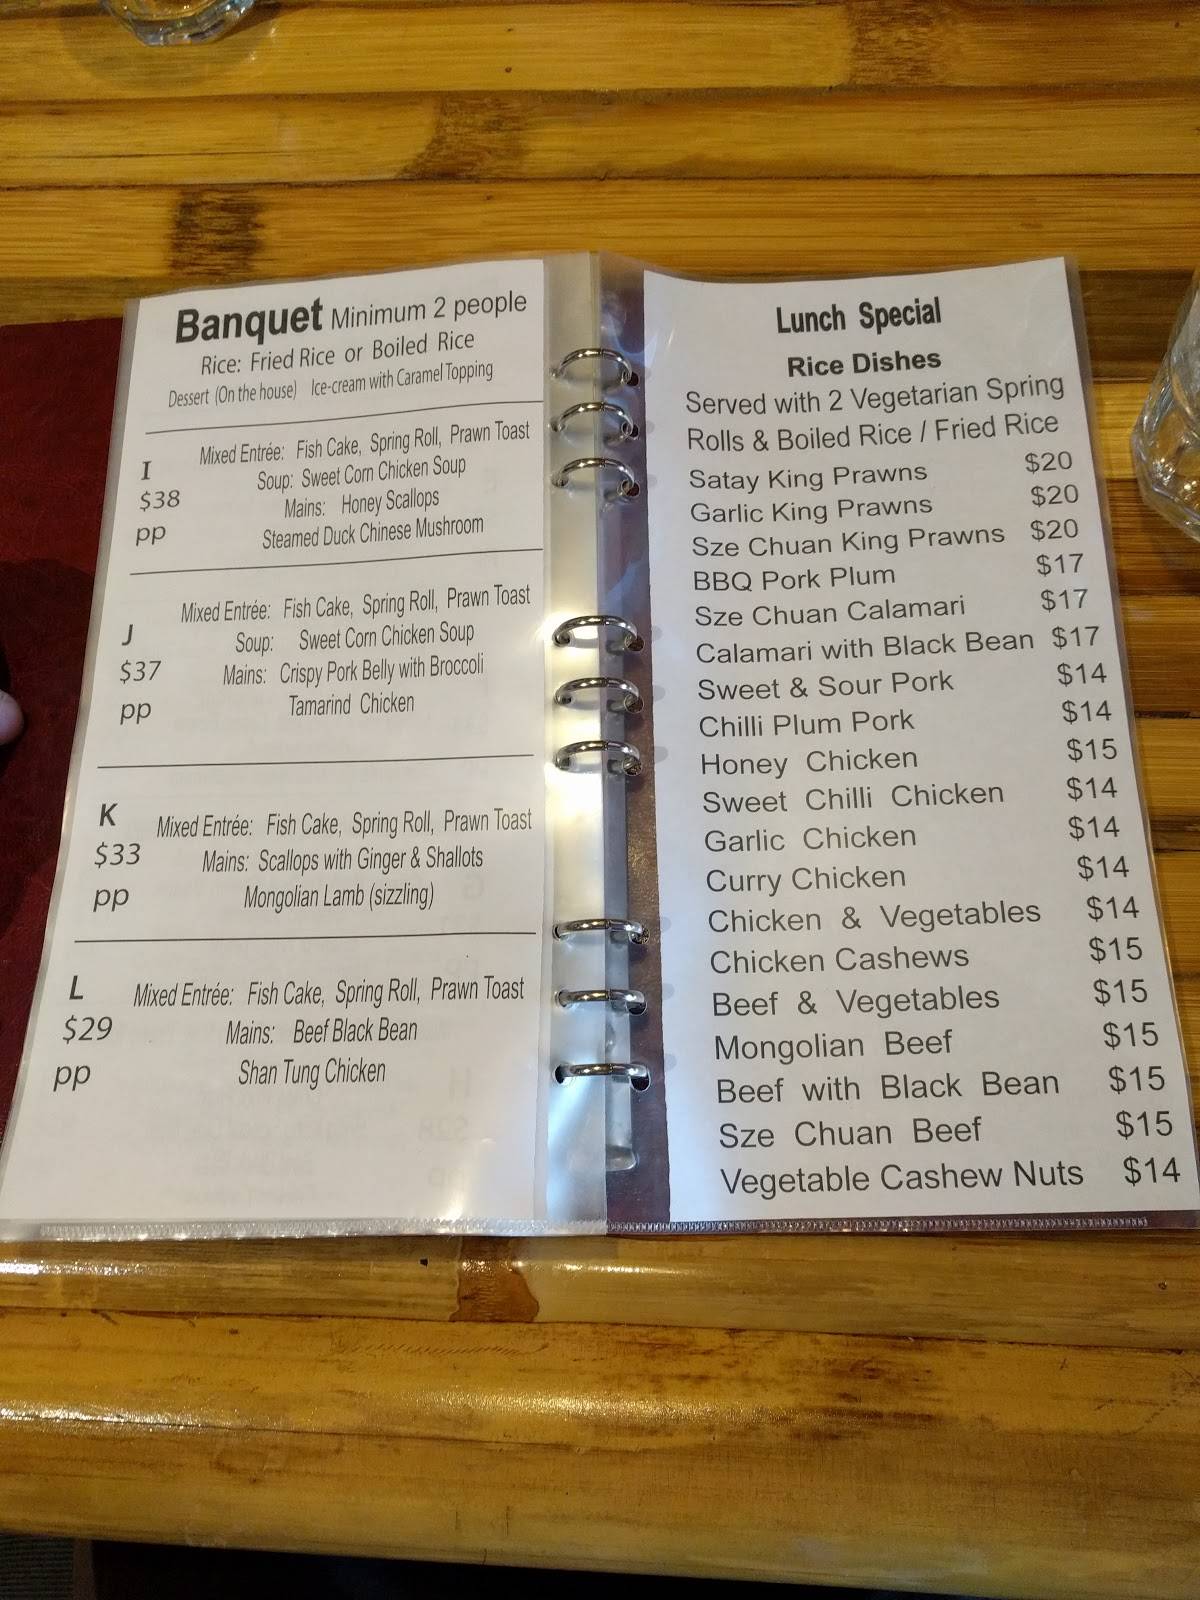 Banquet Minimum 2 people
Rice: Fried Rice or Boiled Rice
Dessert (On the house) Ice-cream with Caramel Topping
I
$38
pp
Mixed Entrée: Fish Cake, Spring Roll, Prawn Toast
Soup: Sweet Corn Chicken Soup
Mains: Honey Scallops
Steamed Duck Chinese Mushroom
J
$37
pp
Mixed Entrée: Fish Cake, Spring Roll, Prawn Toast
Soup: Sweet Corn Chicken Soup
Mains: Crispy Pork Belly with Broccoli
Tamarind Chicken
K
$33
pp
Mixed Entrée: Fish Cake, Spring Roll, Prawn Toast
Mains: Scallops with Ginger & Shallots
Mongolian Lamb (sizzling)
L
$29
pp
Mixed Entrée: Fish Cake, Spring Roll, Prawn Toast
Mains: Beef Black Bean
Shan Tung Chicken
Lunch Special
Rice Dishes
Served with 2 Vegetarian Spring
Rolls & Boiled Rice / Fried Rice
Satay King Prawns $20
Garlic King Prawns $20
Sze Chuan King Prawns $20
BBQ Pork Plum $17
Sze Chuan Calamari $17
Calamari with Black Bean $17
Sweet & Sour Pork $14
Chilli Plum Pork $14
Honey Chicken $15
Sweet Chilli Chicken $14
Garlic Chicken $14
Curry Chicken $14
Chicken & Vegetables $14
Chicken Cashews $15
Beef & Vegetables $15
Mongolian Beef $15
Beef with Black Bean $15
Sze Chuan Beef $15
Vegetable Cashew Nuts $14